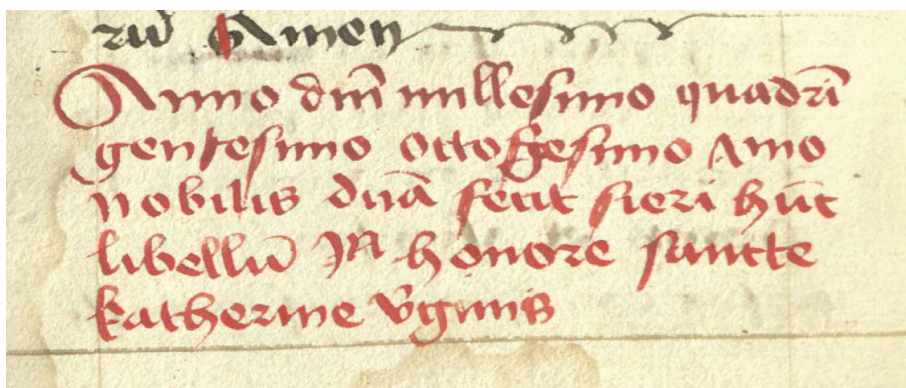 rū Amen
Anno dm̄ millesimo quadrī
gentesimo octogesimo Anno
nobilis dnā fecit fieri hūc
libellū In honore sancte
katherine v̄ginis